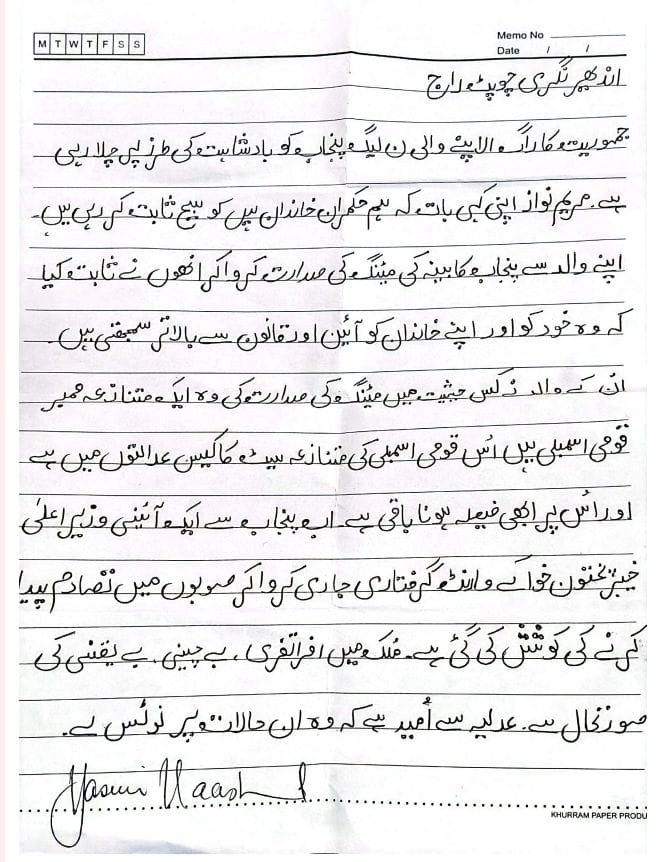 M T W T F S S
Memo No
Date / /
اندھیر نگری چوپٹ راج
جمہوریت کا راگ الاپنے والی ن لیگ پنجاب کو بادشاہت کی طرز پر چلا رہی
ہے۔ مریم نواز اپنی کہی بات کہ ہم حکمران خاندان ہیں کو سچ ثابت کر رہی ہیں۔
اپنے والد سے پنجاب کابینہ کی میٹنگ کی صدارت کروا کر انھوں نے ثابت کیا
کہ وہ خود کو اور اپنے خاندان کو آئین اور قانون سے بالاتر سمجھتی ہیں۔
ان کے والد نے کس حیثیت میں میٹنگ کی صدارت کی وہ ایک متنازعہ ممبر
قومی اسمبلی ہیں اُس قومی اسمبلی کی متنازعہ سیٹ کا کیس عدالتوں میں ہے
اور اُس پر ابھی فیصلہ ہونا باقی ہے۔ اب پنجاب سے ایک آئینی وزیر اعلیٰ
خیبر پختون خوا کے وارنٹ گرفتاری جاری کروا کر صوبوں میں تصادم پیدا
کرنے کی کوشش کی گئی ہے۔ ملک میں افراتفری، بے چینی، بے یقینی کی
صورتحال ہے۔ عدلیہ سے اُمید ہے کہ وہ ان حالات پر نوٹس لے۔
Yasmin Raashid
KHURRAM PAPER PRODU